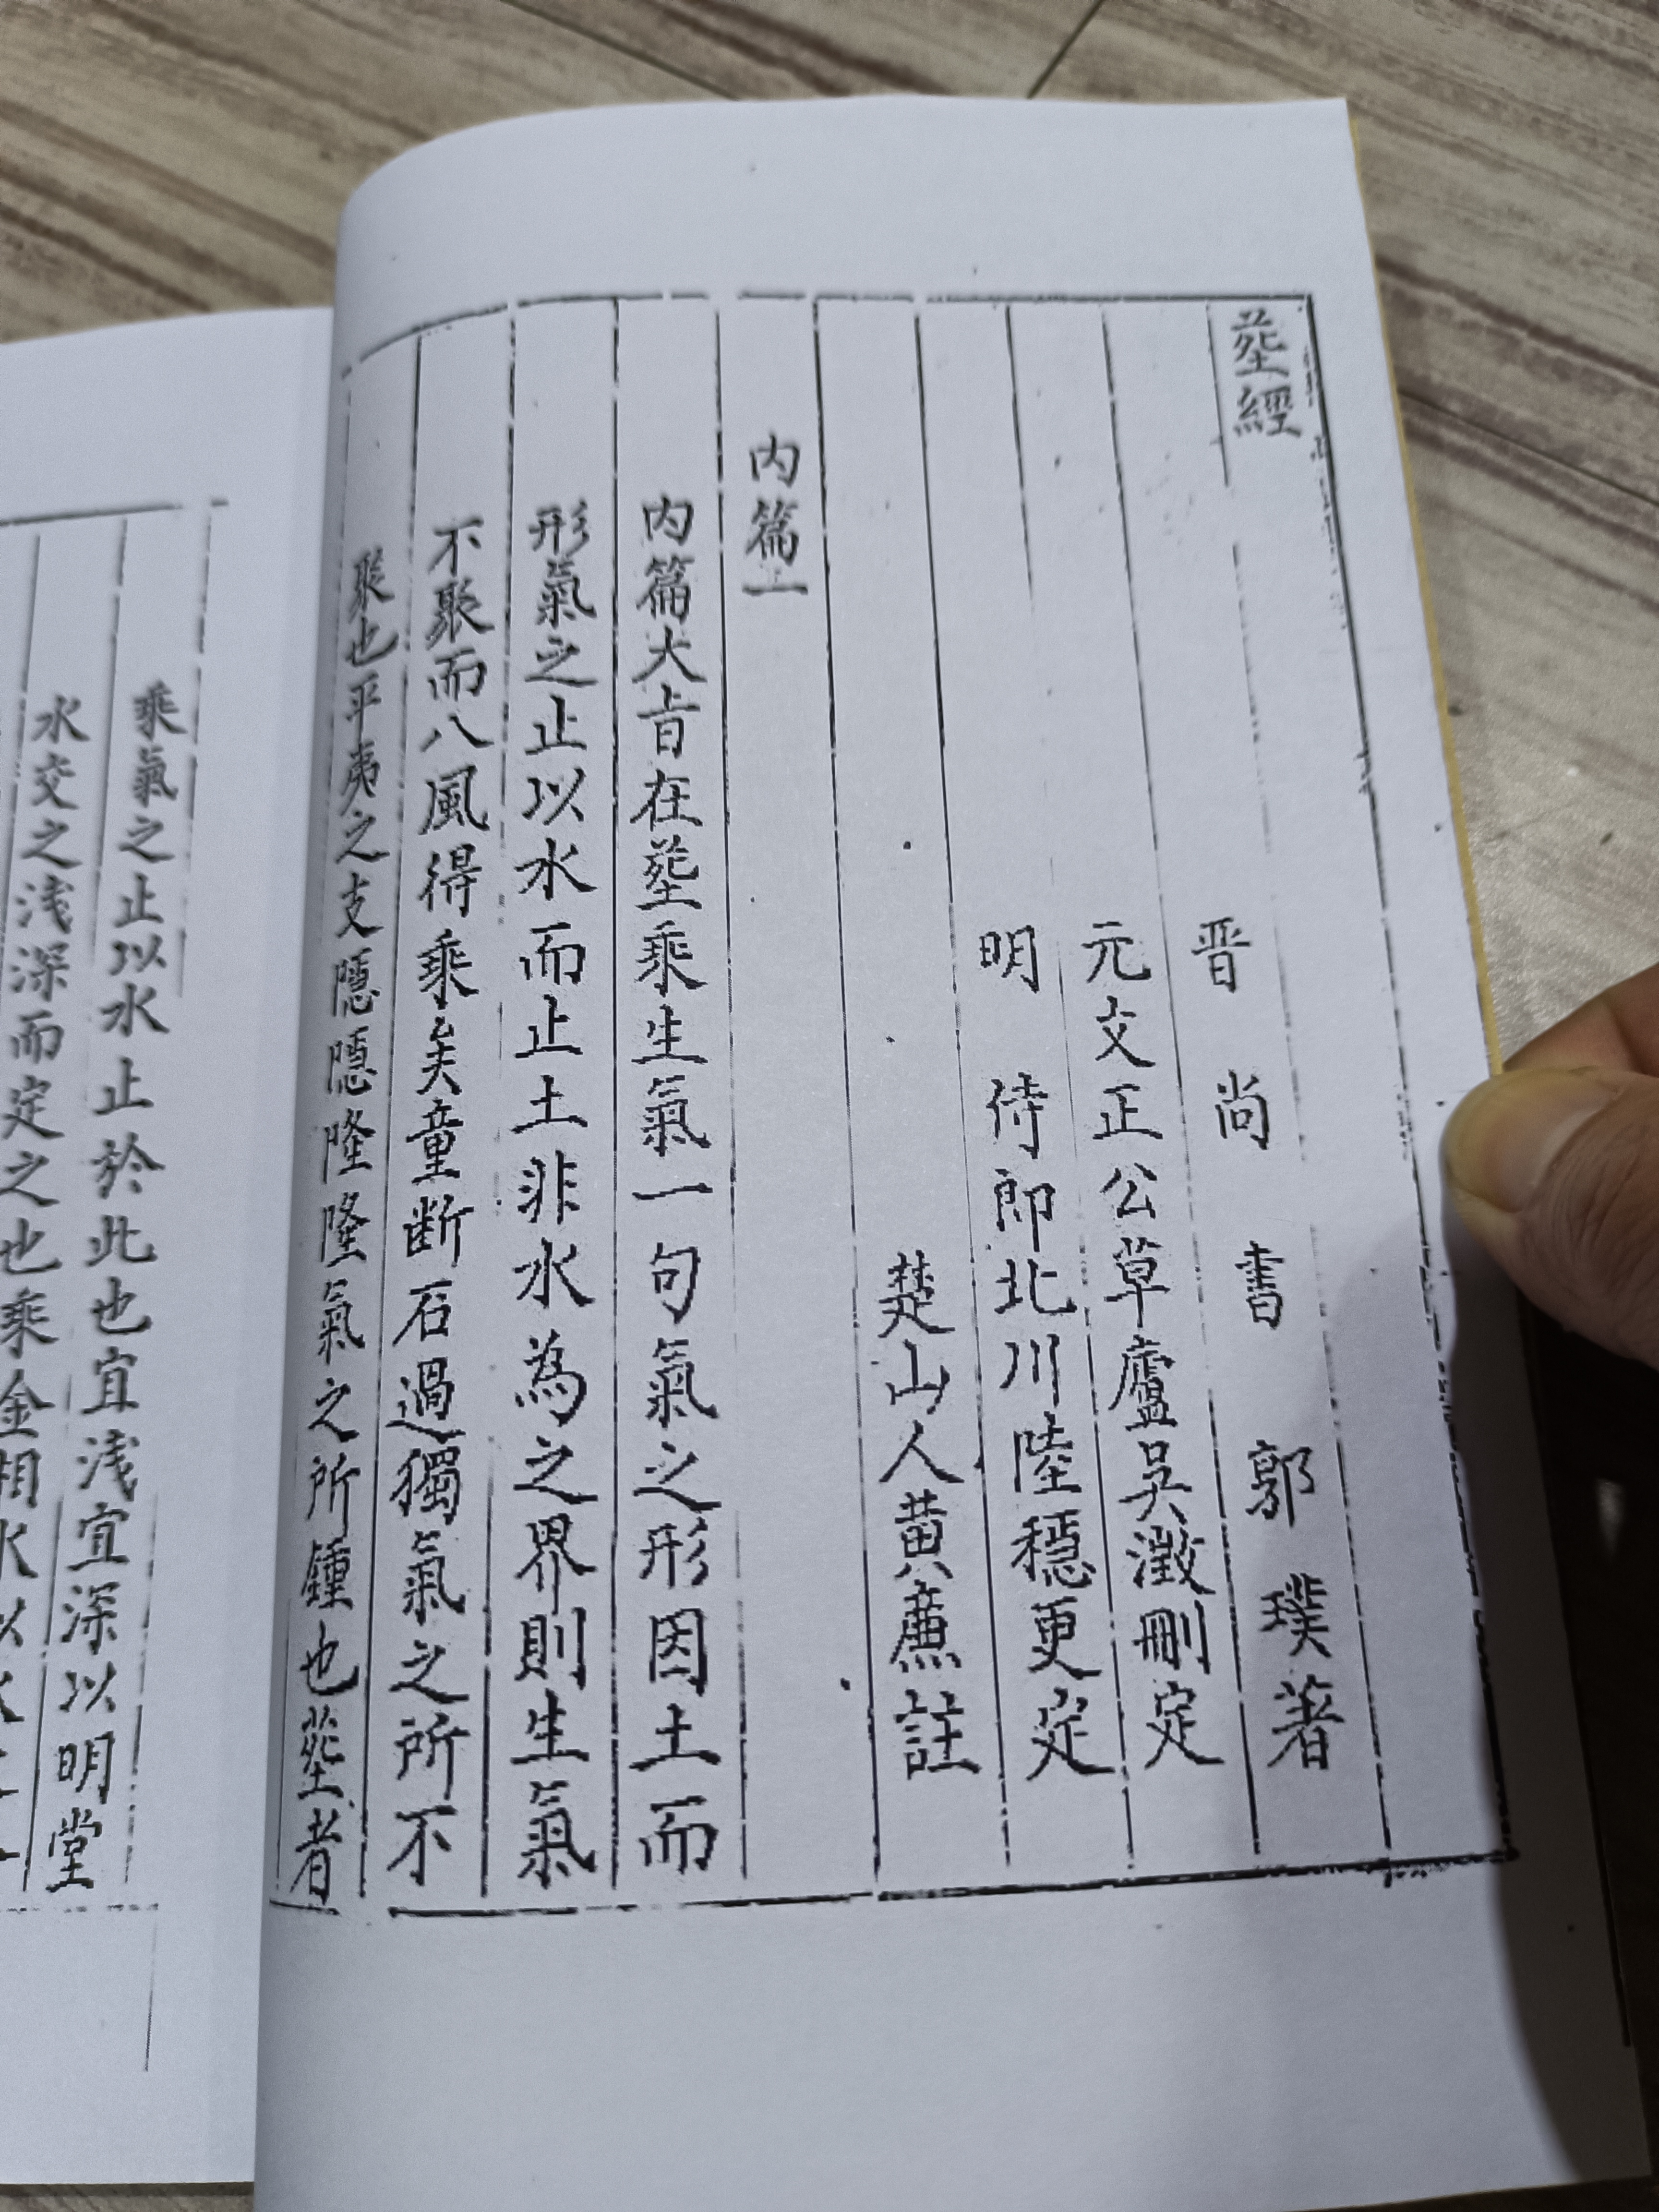 塟經
晋尚書郭璞著
元文正公草廬吳澂刪定
明侍郎北川陸穩更定
楚山人黄廉註
内篇上
内篇大㫖在塟乘生氣一句氣之形因土而
形氣之止以水而止土非水為之界則生氣
不聚而八風得乘矣童斷石過獨氣之所不
聚也平夷之支隱隱隆隆氣之所鍾也塟者
乘氣之止以水止於此也宜浅宜深以明堂
水交之浅深而定之也乘金相水以